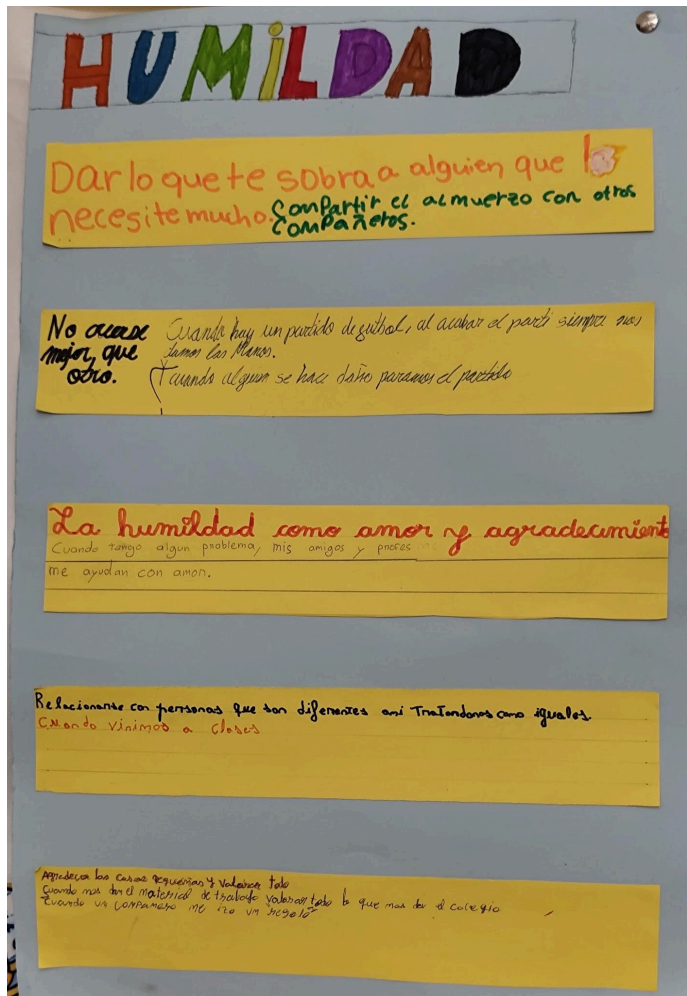 HUMiLDAD
Dar lo que te sobra a alguien que lo
necesite mucho. Compartir el almuerzo con otros
compañeros.
No
mejor, que
otro.
Cuando hay un partido de futbol, al acabar el parti siempre nos
damos las Manos.
Y cuando alguien se hace daño paramos el partido
La humildad como amor y agradecimient
Cuando tango algun problema, mis amigos y profes
me ayudan con amor.
Relacionarse con personas que son diferentes a mi Tratandonos como iguales.
Cuando vinimos a clases
Agradecer las cosas pequeñas y valorar todo
Cuando nos dan el material de trabajo valorar todo lo que nos da el colegio
Cuando un compañero me izo un regalo